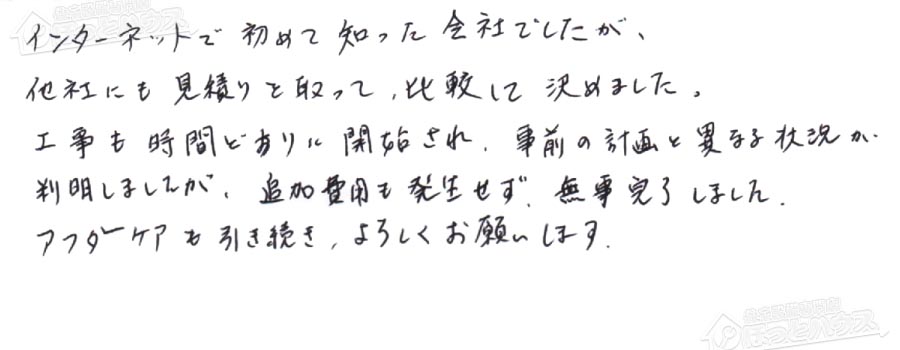 インターネットで初めて知った会社でしたが、
他社にも見積りを取って、比較して決めました。
工事も時間どおりに開始され、事前の計画と異なる状況が
判明しましたが、追加費用も発生せず、無事完了しました。
アフターケアも引き続き、よろしくお願いします。
ほっとハウス